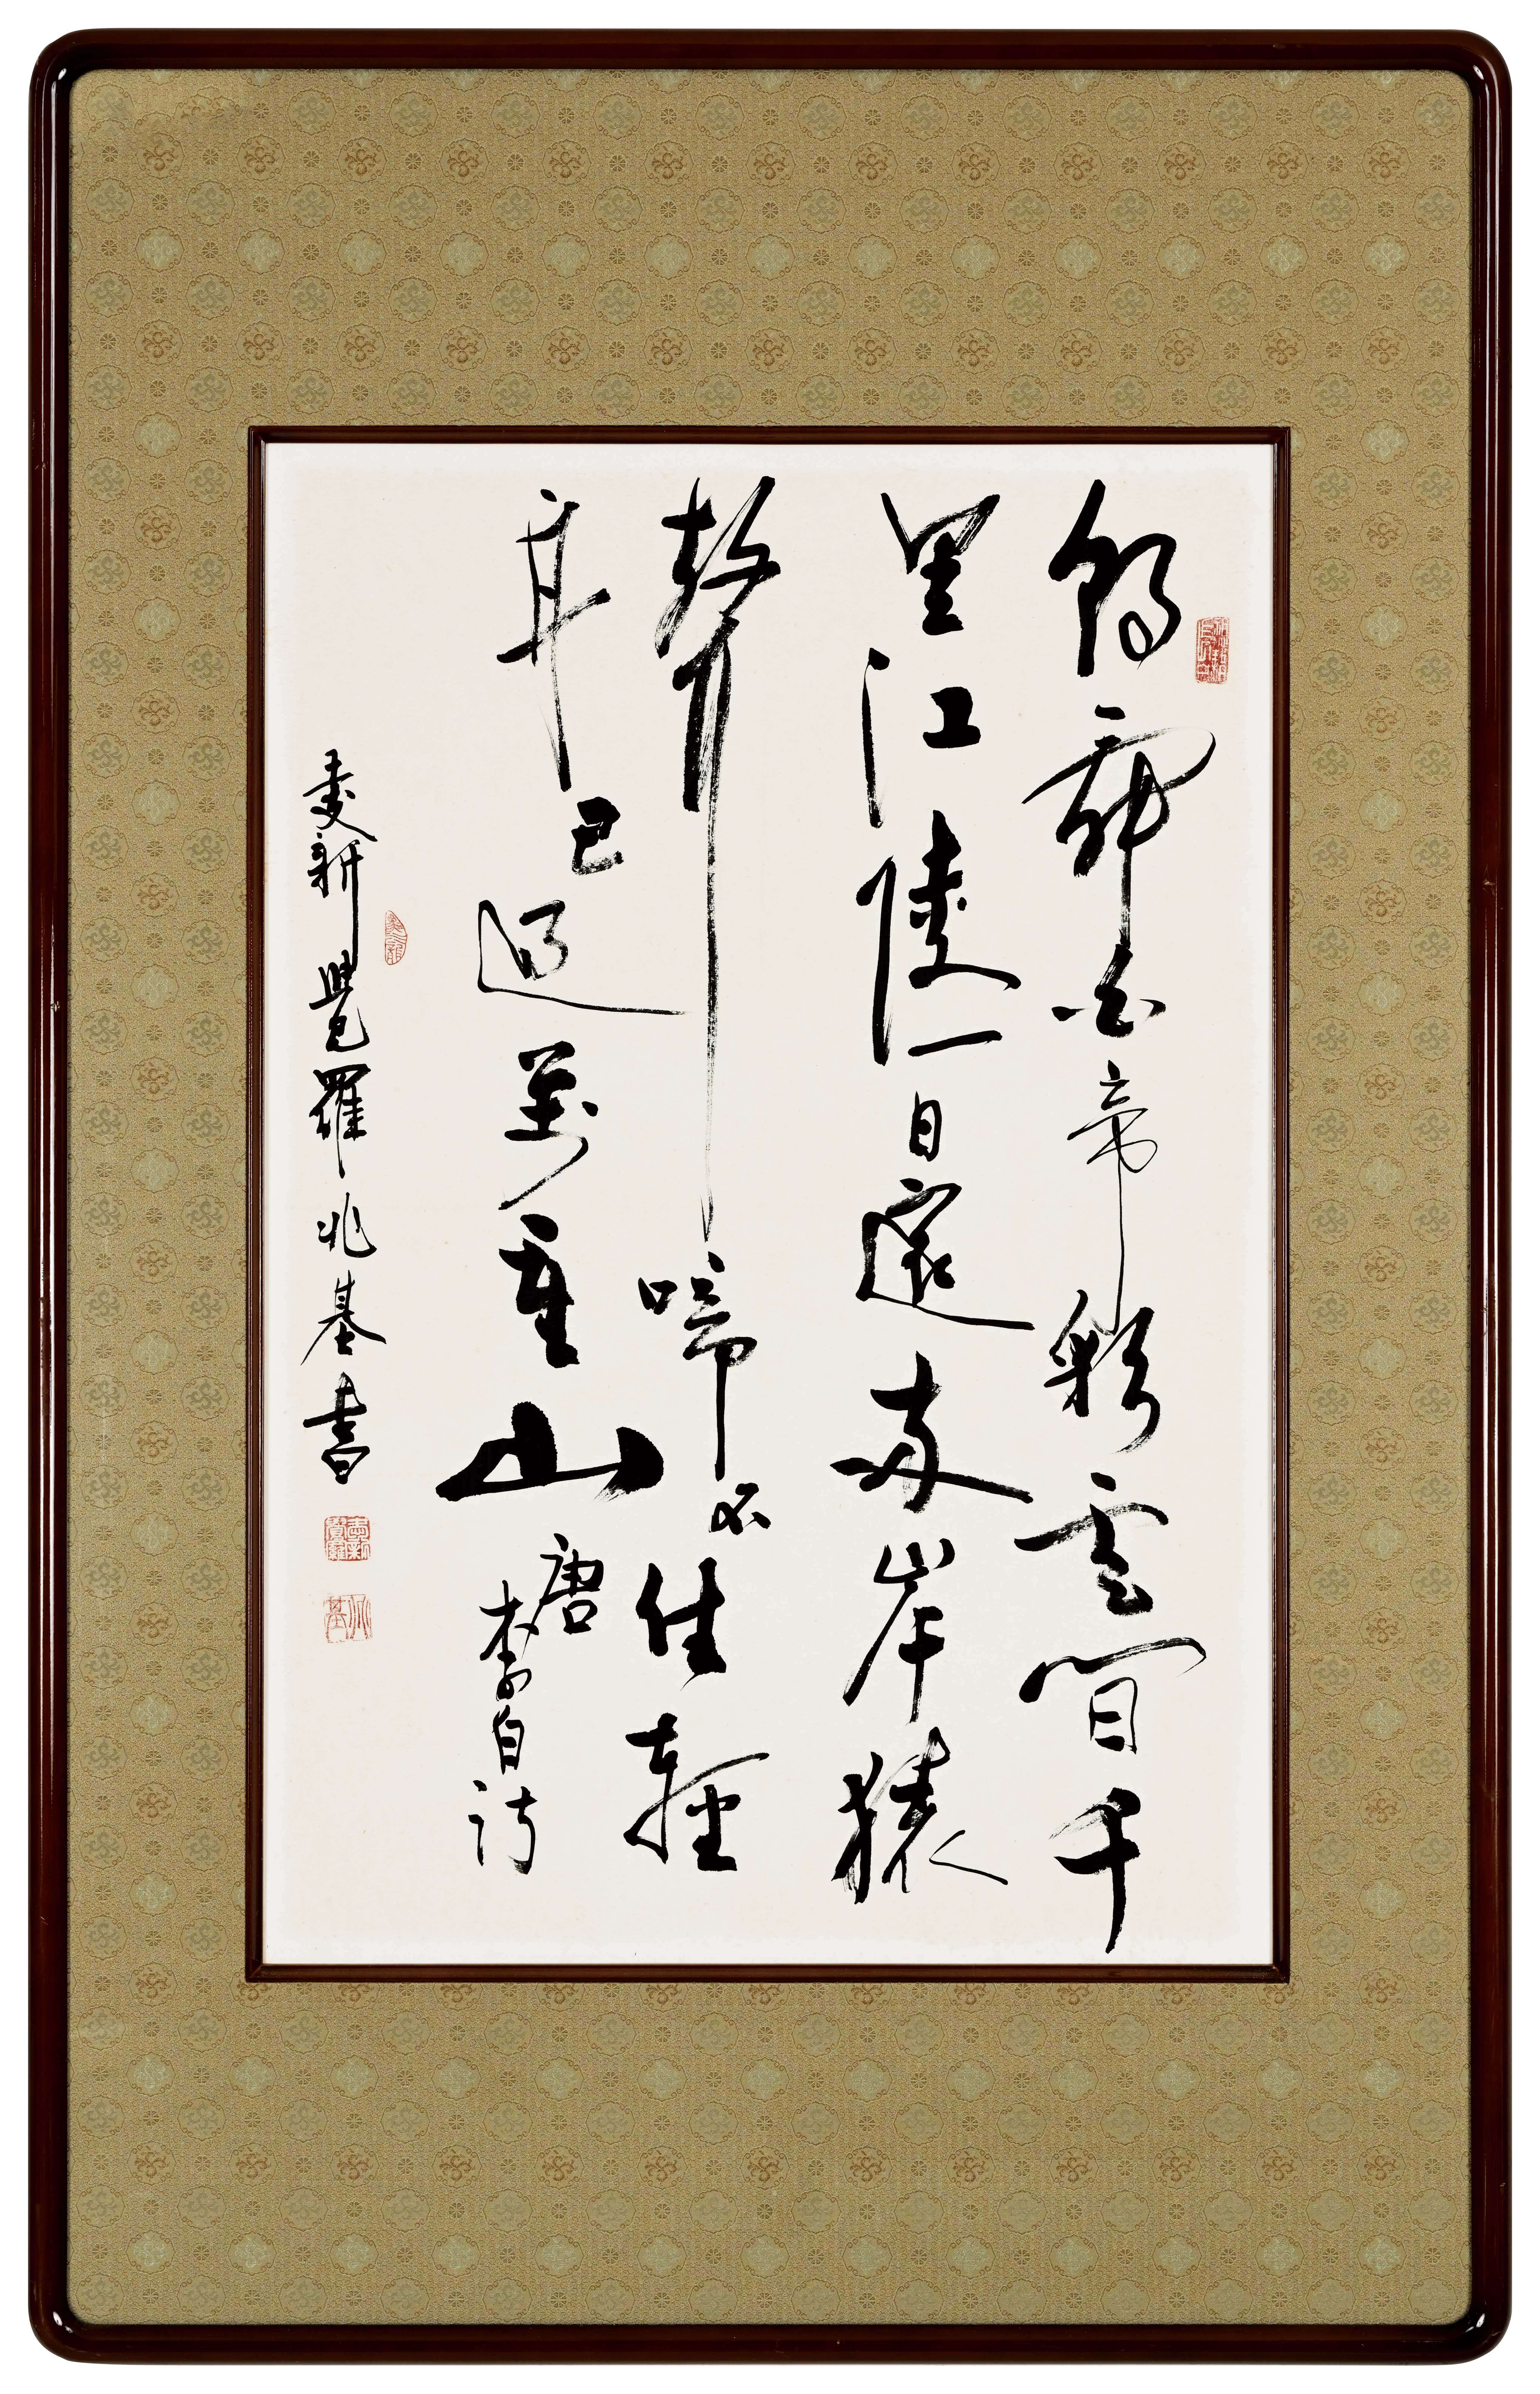 朝辭白帝彩雲間千
里江陵一日還兩岸猿
聲啼不住輕
舟已過萬重山
唐李白詩
愛新覺羅兆基書
愛新覺羅
兆基